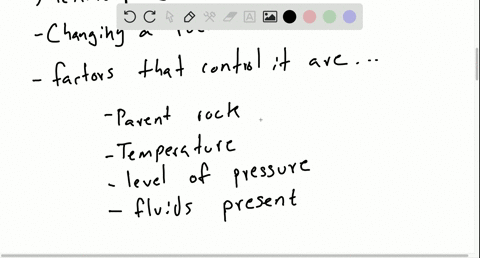 - Changing a
- factors that control it are ...
- Parent rock
- Temperature
- level of pressure
- fluids present